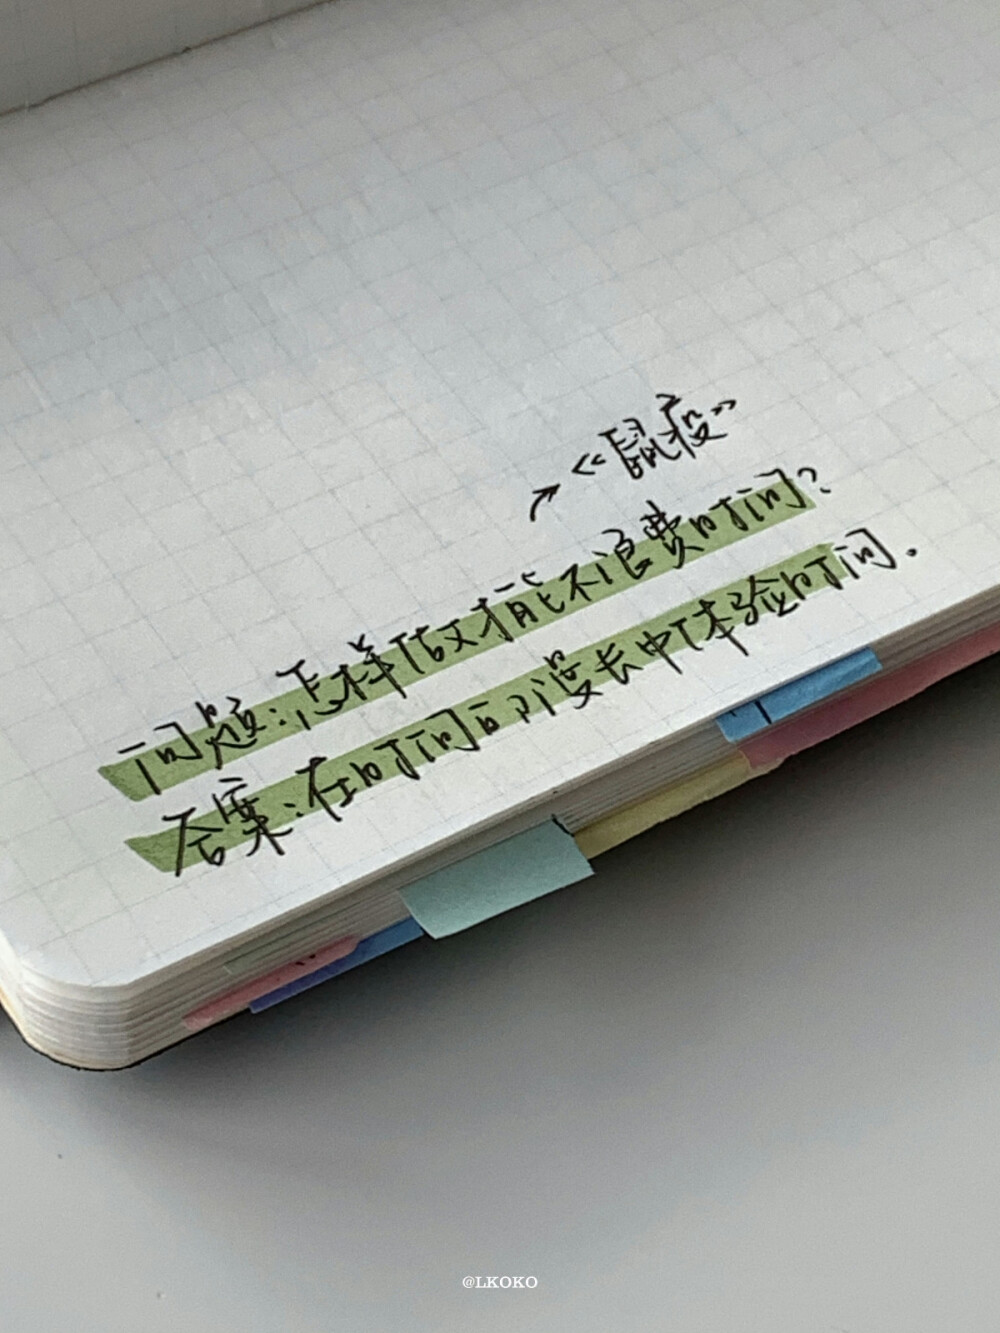 《鼠疫》
问题:怎样做才能不浪费时间?
答案:在时间的漫长中体验时间.
@LKOKO